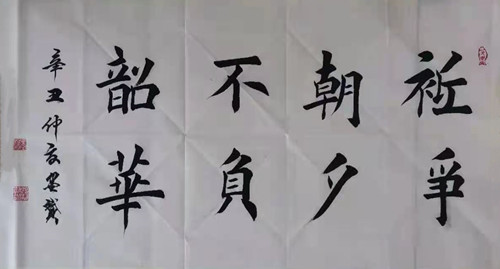 祇爭
朝夕
不負
韶華
辛丑仲夏